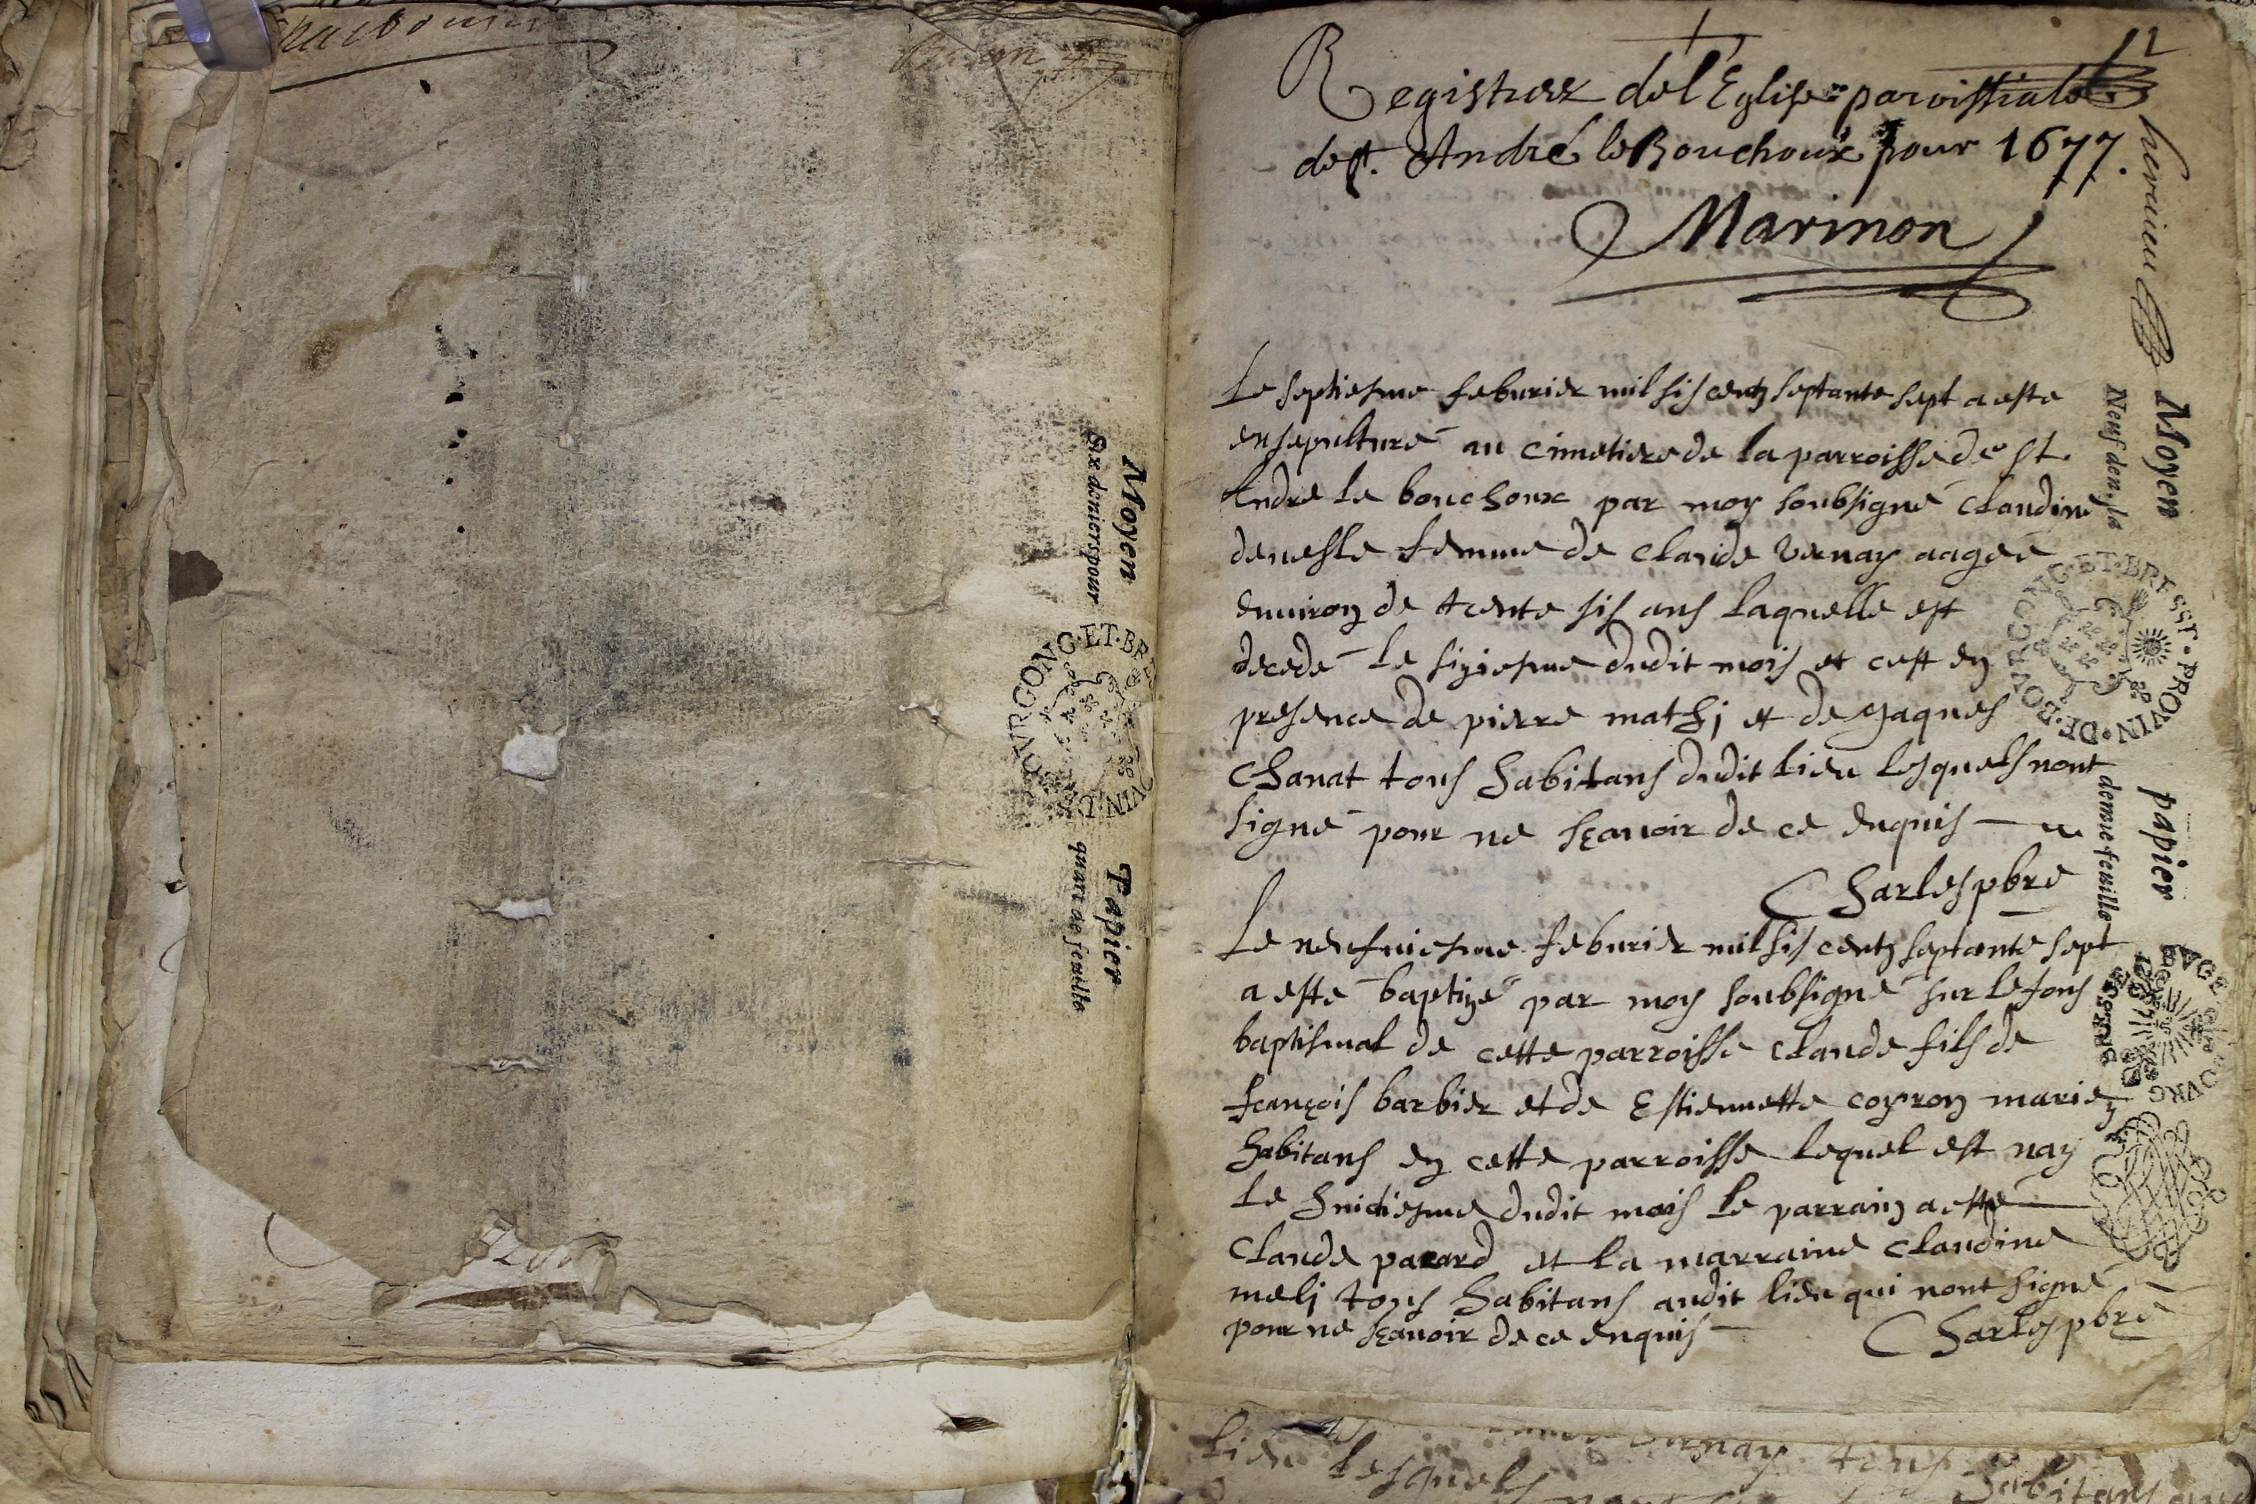 Moyen
Six deniers pour
BOVRGONG·ET·BRE
VIN·D
Papier
quart de feuille
12
Registrez de l'Eglise parroissiale
de St. André le Bouchoux pour 1677.
Marinon
Le septiesme feburier mil sis centz septante sept a este
ensepulturé au cimetiere de la parroisse de St
Andre le bouchoux par moy soubsigné Claudine
deneste femme de Claude Vernay aagée
enuiron de trente sis ans laquelle est
decedé le siziesme dudit mois et cest en
presence de pierre mathj et de Jaques
Chanat tous habitans dudit lieu lesquels nont
signé pour ne sçauoir de ce enquis
Charles pbre
Le neufuiesme feburier mil sis centz septante sept
a esté baptizé par moy soubsigné sur le fons
baptismal de cette parroisse Claude fils de
françois barbier et de Estiennette coyron mariez
habitans en cette parroisse lequel est nay
le huictiesme dudit mois le parrain a esté
Claude pacard et la marraine Claudine
melj tous habitans audit lieu qui nont signé
pour ne sçauoir de ce enquis
Charles pbre
Moyen
Neuf den. la
PROVIN·DE·BOVRGONG·ET·BRESSE
papier
demie feuille
lieu lesquels
Vernay tous habitans